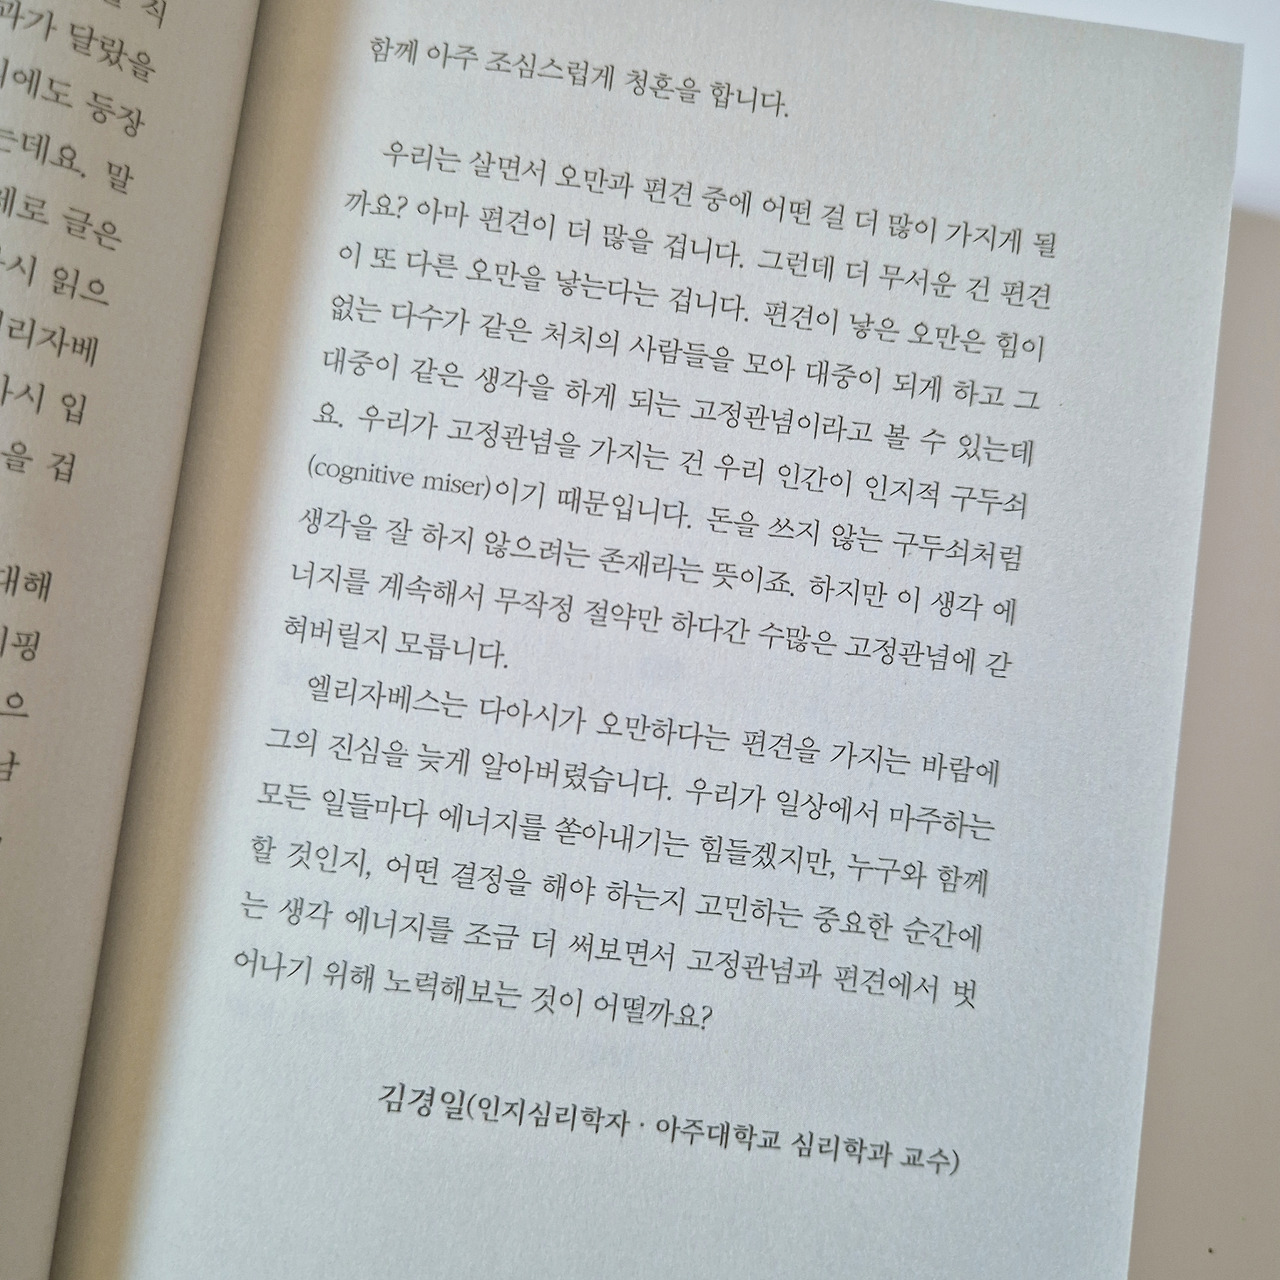 식
과가 달랐을
에도 등장
는데요. 말
제로 글은
시 읽으
리자베
아시 입
을 겁
대해
핑
으
남
함께 아주 조심스럽게 청혼을 합니다.
우리는 살면서 오만과 편견 중에 어떤 걸 더 많이 가지게 될
까요? 아마 편견이 더 많을 겁니다. 그런데 더 무서운 건 편견
이 또 다른 오만을 낳는다는 겁니다. 편견이 낳은 오만은 힘이
없는 다수가 같은 처치의 사람들을 모아 대중이 되게 하고 그
대중이 같은 생각을 하게 되는 고정관념이라고 볼 수 있는데
요. 우리가 고정관념을 가지는 건 우리 인간이 인지적 구두쇠
(cognitive miser)이기 때문입니다. 돈을 쓰지 않는 구두쇠처럼
생각을 잘 하지 않으려는 존재라는 뜻이죠. 하지만 이 생각 에
너지를 계속해서 무작정 절약만 하다간 수많은 고정관념에 갇
혀버릴지 모릅니다.
엘리자베스는 다아시가 오만하다는 편견을 가지는 바람에
그의 진심을 늦게 알아버렸습니다. 우리가 일상에서 마주하는
모든 일들마다 에너지를 쏟아내기는 힘들겠지만, 누구와 함께
할 것인지, 어떤 결정을 해야 하는지 고민하는 중요한 순간에
는 생각 에너지를 조금 더 써보면서 고정관념과 편견에서 벗
어나기 위해 노력해보는 것이 어떨까요?
김경일(인지심리학자 · 아주대학교 심리학과 교수)